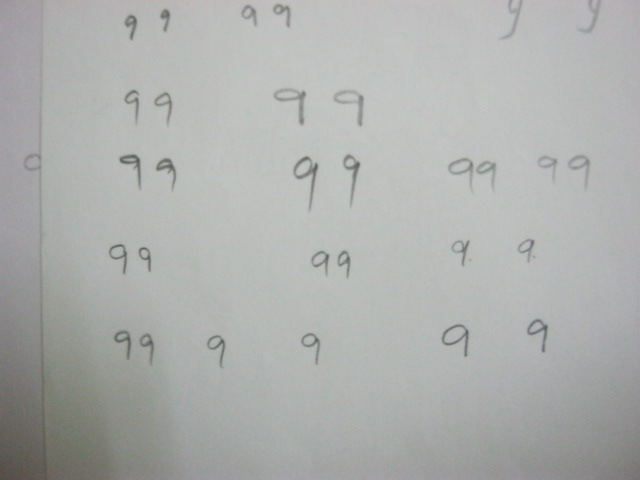 9 9 99
99 9 9
99 9 9 99 99
99 99 9. 9.
99 9 9 9 9